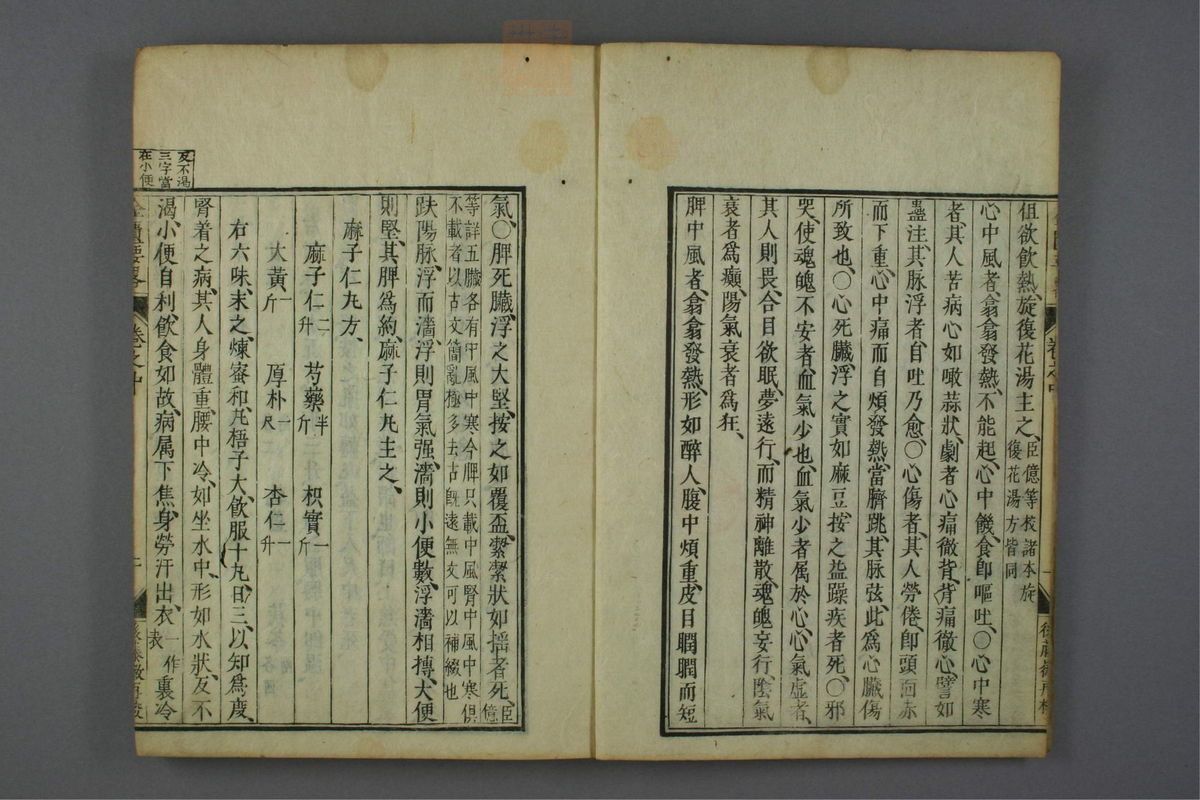 但欲飲熱、旋復花湯主之、臣億等校諸本旋
復花湯方皆同
心中風者、翕翕發熱、不能起、心中饑、食即嘔吐、〇心中寒
者、其人苦病心如噉蒜狀、劇者心痛徹背、背痛徹心、譬如
蠱注、其脉浮者、自吐乃愈、〇心傷者、其人勞倦即頭面赤
而下重、心中痛而自煩發熱、當臍跳、其脉弦、此爲心臟傷
所致也、〇心死臟、浮之實如麻豆、按之益躁疾者死、〇邪
哭、使魂魄不安者、血氣少也、血氣少者属於心、心氣虛者、
其人則畏、合目欲眠、夢遠行、而精神離散、魂魄妄行、陰氣
衰者爲癲、陽氣衰者爲狂、
脾中風者、翕翕發熱、形如醉人、腹中煩重、皮目瞤瞤而短
氣、〇脾死臟、浮之大堅、按之如覆盃、潔潔狀如揺者死、臣億
等詳五臟各有中風中寒今脾只載中風腎中風中寒俱
不載者以古文簡亂極多去古既遠無文可以補綴也
趺陽脉、浮而濇、浮則胃氣强、濇則小便數、浮濇相摶、大便
則堅、其脾爲約、麻子仁丸主之、
麻子仁丸方、
麻子仁二升 芍藥半斤 枳實一斤
大黃一斤 厚朴一尺 杏仁一升
右六味、末之、煉蜜和、丸梧子大、飲服十丸、日三、以知爲度、
腎着之病、其人身體重、腰中冷、如坐水中、形如水狀、反不
渴、小便自利、飲食如故、病属下焦、身勞汗出、衣表一作裏冷
反不渴
三字當
在小便
金匱要略 卷之中